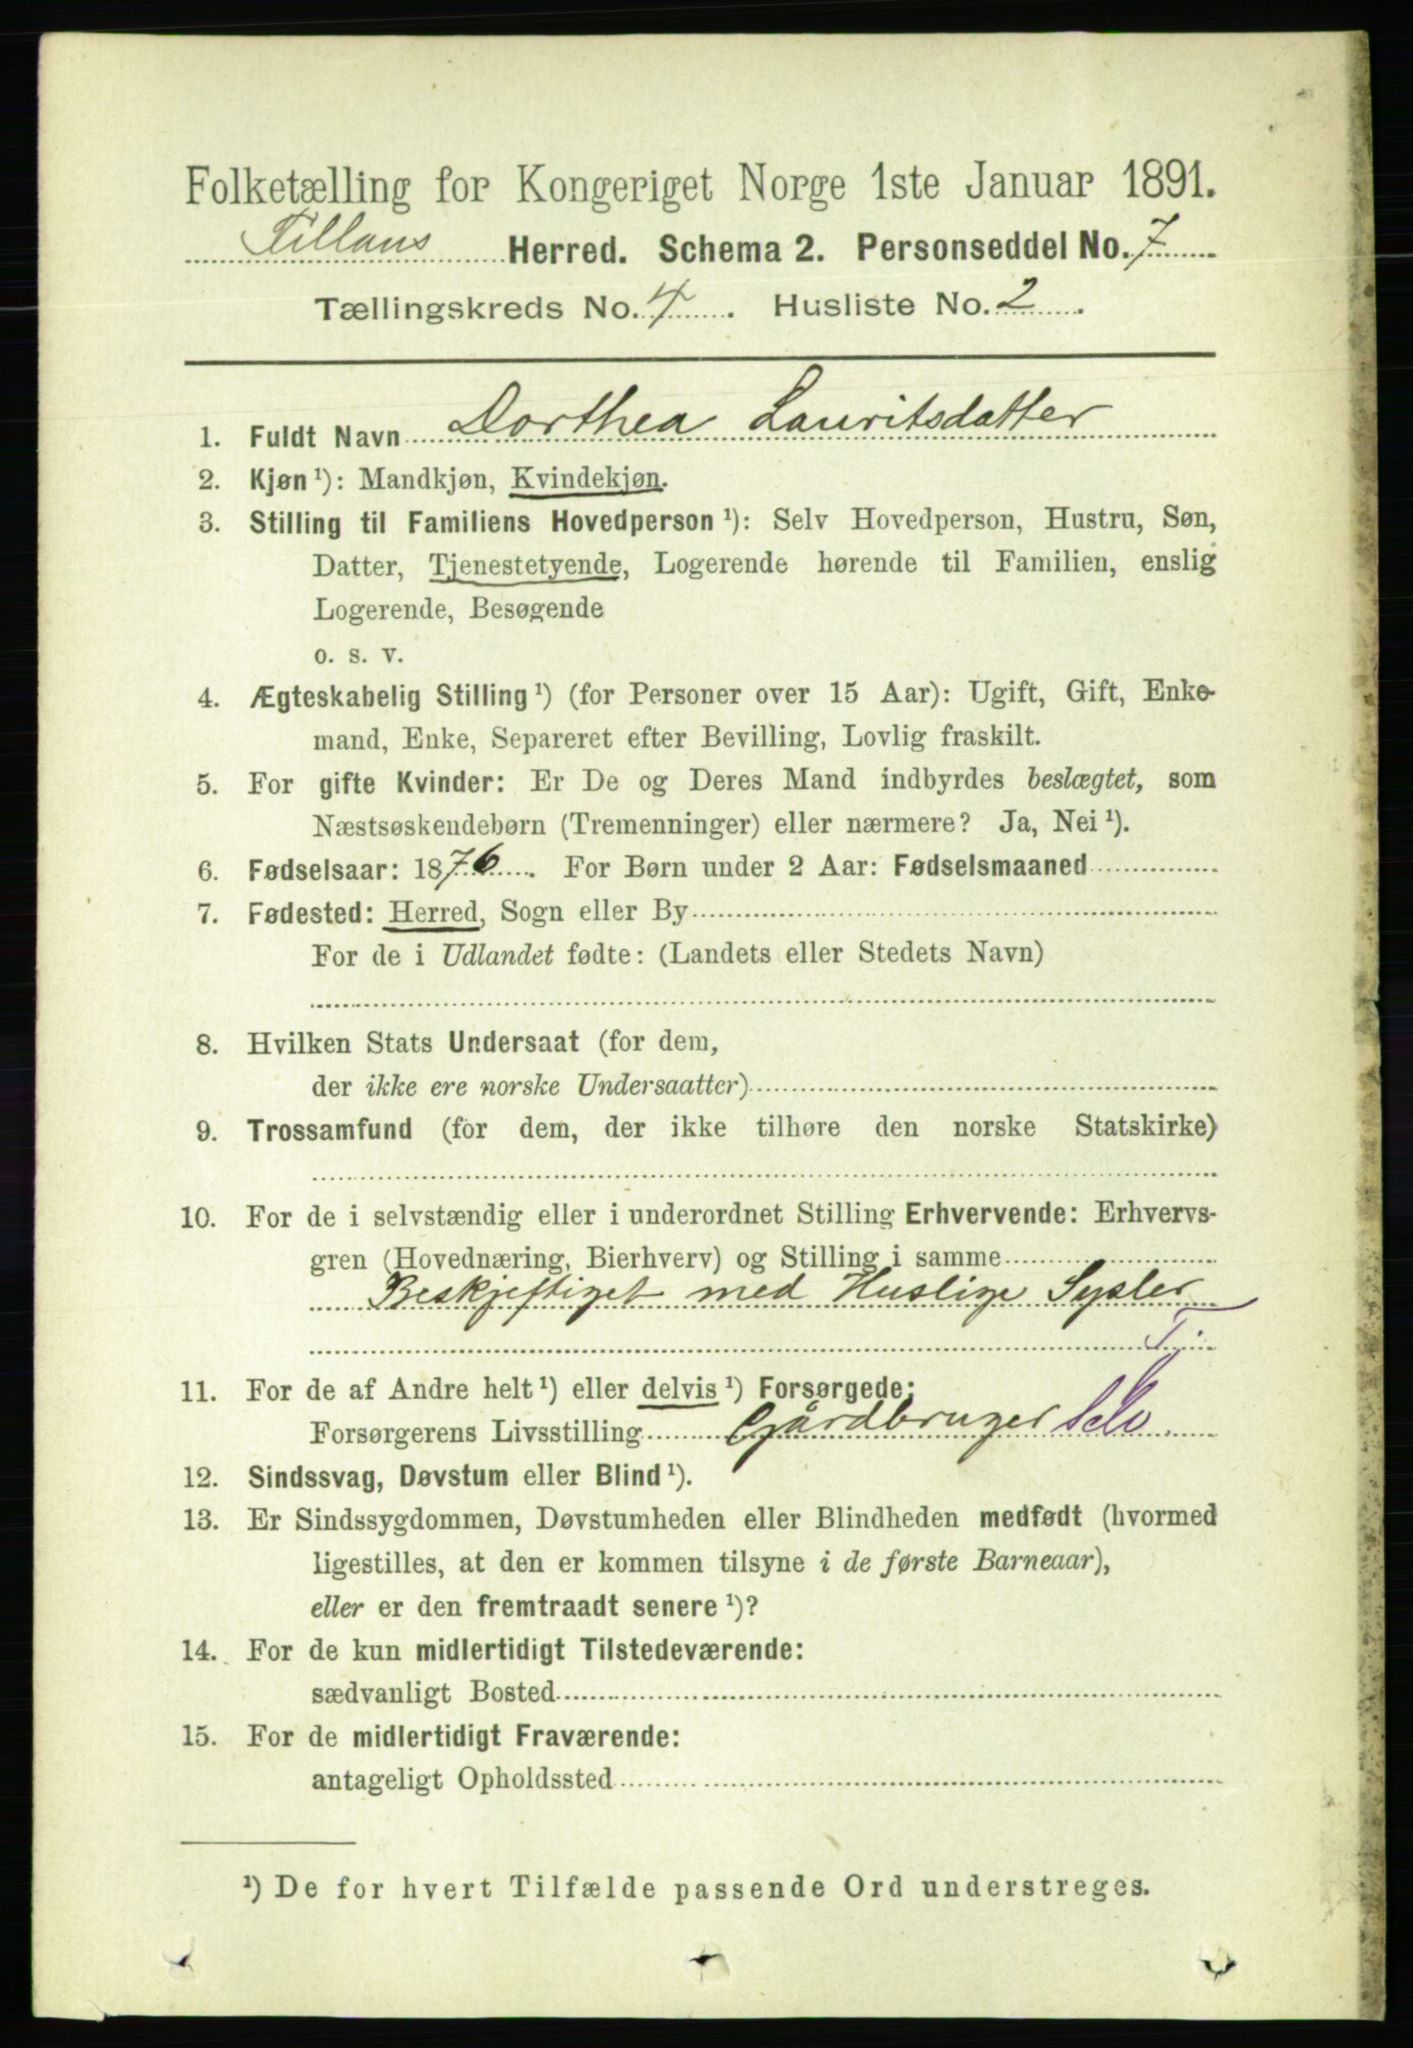 Folketælling for Kongeriget Norge 1ste Januar 1891.
Fillans Herred. Schema 2. Personseddel No. 7
Tællingskreds No. 4. Husliste No. 2.
1. Fuldt Navn Dorthea Lauritsdatter
2. Kjøn ¹): Mandkjøn, Kvindekjøn.
3. Stilling til Familiens Hovedperson ¹): Selv Hovedperson, Hustru, Søn,
Datter, Tjenestetyende, Logerende hørende til Familien, enslig
Logerende, Besøgende
o. s. v.
4. Ægteskabelig Stilling ¹) (for Personer over 15 Aar): Ugift, Gift, Enke-
mand, Enke, Separeret efter Bevilling, Lovlig fraskilt.
5. For gifte Kvinder: Er De og Deres Mand indbyrdes beslægtet, som
Næstsøskendebørn (Tremenninger) eller nærmere? Ja, Nei ¹).
6. Fødselsaar: 1876. For Børn under 2 Aar: Fødselsmaaned
7. Fødested: Herred, Sogn eller By
For de i Udlandet fødte: (Landets eller Stedets Navn)
8. Hvilken Stats Undersaat (for dem,
der ikke ere norske Undersaatter)
9. Trossamfund (for dem, der ikke tilhøre den norske Statskirke)
10. For de i selvstændig eller i underordnet Stilling Erhvervende: Erhvervs-
gren (Hovednæring, Bierhverv) og Stilling i samme
Beskjeftiget med Huslige Sysler
Tj.
11. For de af Andre helt ¹) eller delvis ¹) Forsørgede:
Forsørgerens Livsstilling Gårdbruger Selv.
12. Sindssvag, Døvstum eller Blind ¹).
13. Er Sindssygdommen, Døvstumheden eller Blindheden medfødt (hvormed
ligestilles, at den er kommen tilsyne i de første Barneaar),
eller er den fremtraadt senere ¹)?
14. For de kun midlertidigt Tilstedeværende:
sædvanligt Bosted
15. For de midlertidigt Fraværende:
antageligt Opholdssted
¹) De for hvert Tilfælde passende Ord understreges.